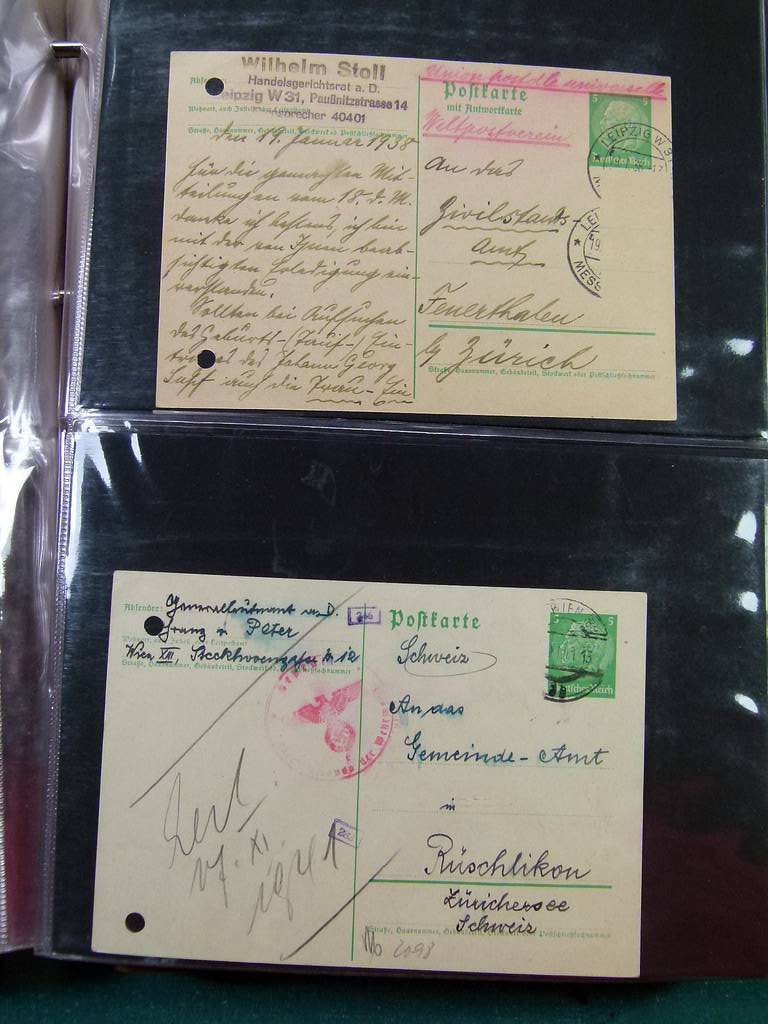 Wilhelm Stoll
Handelsgerichtsrat a. D.
Leipzig W 31, Paußnitzstrasse 14
Fernsprecher 40401
Union postale universelle
Postkarte
mit Antwortkarte
Weltpostverein
5 5
Deutsches Reich
LEIPZIG W 31
den 19. Januar 1938
für die gemachten Mit-
teilungen vom 18. d. M.
danke ich bestens, ich bin
mit der von Ihnen beab-
sichtigten Erledigung ein-
verstanden.
Sollten bei Aufsuchen
des Geburts-(Tauf-)Ein-
trages des Johann Georg
auch die Trau-Ein
An das
Zivilstands-
amt
Feuerthalen
b/ Zürich
Straße, Hausnummer, Gebäudeteil, Stockwerk oder Postschließfachnummer
Absender: Generalleutnant a. D.
Franz v. Peter
Wien XIII,
12
Postkarte
Schweiz
WIEN
5 5
Deutsches Reich
An das
Gemeinde-Amt
in
Rüschlikon
Zürichersee
Schweiz
Straße, Hausnummer, Gebäudeteil, Stockwerk oder Postschließfachnummer
der Wehrm
XI.
1941